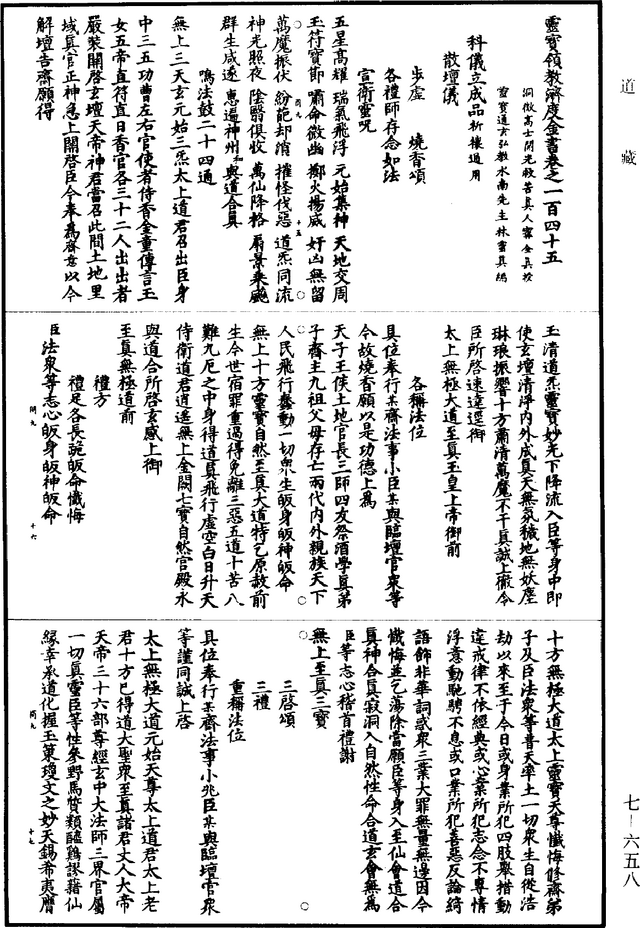 道藏
靈寶領教濟度金書卷之一百四十五
洞微高士開光救苦真人甯全真授
靈寶通玄弘教水南先生林靈真編
科儀立成品祈禳通用
散壇儀
步虛　燒香頌
各禮師存念如法
宣衛靈呪
五星高耀　瑞氣飛浮　元始集神　天地交周
玉符寶節　嘯命微幽　擲火揚威　奸凶無留
萬魔振伏　紛葩却消　摧怪伐惡　道炁同流
神光照夜　陰翳俱收　萬仙降格　扇景乘飈
群生咸遂　惠遍神州　和與道合真
鳴法鼓二十四通
無上三天玄元始三炁太上道君召出臣身
中三五功曹左右官使者侍香金童傳言玉
女五帝直符直日香官各三十二人出出者
嚴裝開啓玄壇天帝神君當召此間土地里
域真官正神急上關啓臣今奉為齋意以今
解壇告齋願得
玉清道炁靈寶妙光下降流入臣等身中即
使玄壇清淨內外咸真天無氛穢地無妖塵
琳琅振響十方肅清萬魔不干真誠上徹令
臣所啓速達逕御
太上無極大道至真玉皇上帝御前
各稱法位
具位奉行某齋法事小臣某與臨壇官衆等
今故燒香願以是功德上為
天子王侯土地官長三師四友祭酒學真弟
子齋主九祖父母存亡兩代內外親族天下
人民飛行蠢動一切衆生皈身皈神皈命
無上十方靈寶自然至真大道特乞原赦前
生今世宿罪重過得免離三惡五道十苦八
難九厄之中身得道真飛行虛空白日升天
侍衛道君逍遙無上金闕七寶自然宮殿永
與道合所啓玄感上御
至真無極道前
禮方
禮足各長跪皈命懺悔
臣法衆等志心皈身皈神皈命
十方無極大道太上靈寶天尊懺悔修齋弟
子及臣法衆等普天率土一切衆生自從浩
劫以來至于今日或身業所犯四肢舉措動
違戒律不依經典或心業所犯志念不專情
浮意動馳騁不息或口業所犯善惡反論綺
語飾非華詞惑衆三業大罪無量無邊因今
懺悔並乞蕩除當願臣等身入至仙會道合
真神合真寂洞入自然性命合道玄會無為
臣等志心稽首禮謝
無上至真三寶
三啓頌
三禮
重稱法位
具位奉行某齋法事小兆臣某與臨壇官衆
等謹同誠上啓
太上無極大道元始天尊太上道君太上老
君十方已得道大聖衆至真諸君丈人大帝
天帝三十六部尊經玄中大法師三界官屬
一切真靈臣等性參野馬質類醯鷄謬藉仙
緣幸承道化握玉策瓊文之妙天錫希夷膺
七－六五八